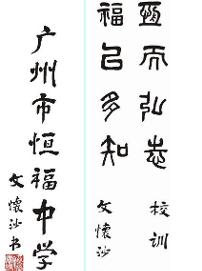 恆而弘志
校训
福㠯多知
文懷沙
广州市恒福中学
文懷沙书